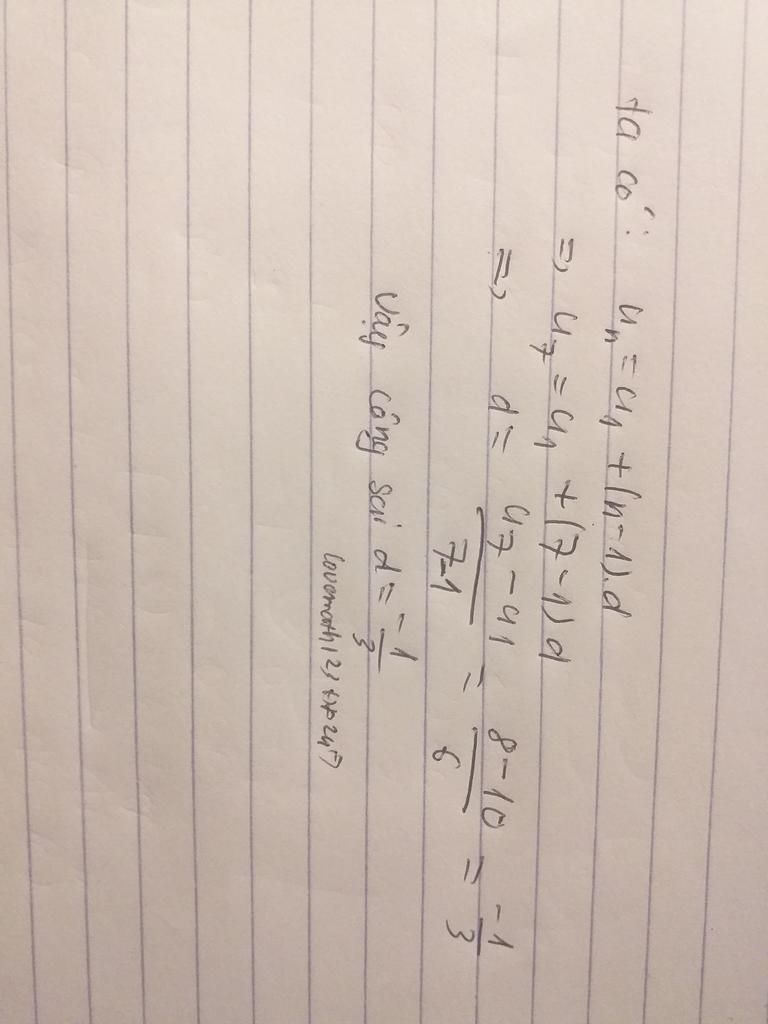 ta có: uₙ = u₁ + (n-1).d
=> u₇ = u₁ + (7-1)d
=> d = \frac{u₇ - u₁}{7-1} = \frac{8-10}{6} = \frac{-1}{3}
Vậy công sai d = \frac{-1}{3}